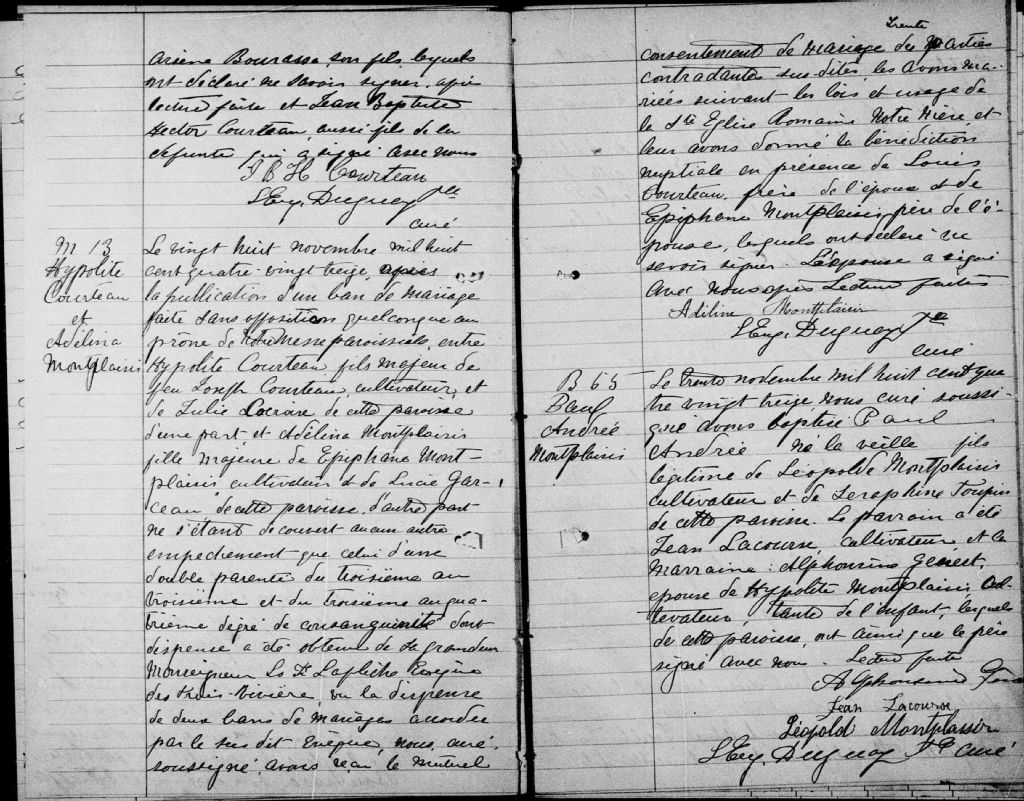 Arsène Bourassa son fils lesquels
ont déclaré ne savoir signer, après
lecture faite et Jean Baptiste
Hector Courteau, aussi fils de la
défunte qui a signé avec nous
J B H Courteau
L Eug. Duguay Ptre
curé
M 13
Hypolite
Courteau
et
Adélina
Montplaisir
Le vingt huit novembre mil huit
cent quatre-vingt treize, après
la publication d'un ban de mariage
faite sans opposition quelconque au
prône de notre Messe paroissiale, entre
Hypolite Courteau fils majeur de
feu Joseph Courteau, cultivateur, et
de Julie de cette paroisse
d'une part, et Adélina Montplaisir
fille majeure de Epiphane Mont-
plaisir cultivateur & de Lucie Gar-
ceau de cette paroisse, d'autre part
ne s'étant découvert aucun autre
empechement que celui d'une
double parenté du troisième au
troisième et du troisième au qua-
trième dégré de consanguinité dont
dispense a été obtenue de Sa grandeur
Monseigneur Ls F. Laflèche Evêque
des Trois-Rivière, vu la dispense
de deux bans de mariages accordée
par le sus dit Evêque, nous, curé,
soussigné, avons reçu le mutuel
Trente
consentement de mariage des parties
contractantes sus-dites, les avons ma-
riées suivant les lois et usage de
la Ste Eglise Romaine Notre Mère, et
leur avons donné la bénédiction
nuptiale en présence de Louis
Courteau, frère de l'époux & de
Epiphane Montplaisir, père de l'é-
pouse, lesquels ont déclaré ne
savoir signer. L'épouse a signé
avec nous après Lecture faite
Adéline Montplaisir
L Eug. Duguay Ptre
curé
B 65
Paul
André
Montplaisir
Le trente novembre mil huit cent qua
tre vingt treize nous curé soussi-
gné avons baptisé Paul
André né la veille fils
légitime de Léopold Montplaisir
cultivateur et de Séraphine Toupin
de cette paroisse. Le parrain a été
Jean Lacourse, cultivateur et la
marraine: Alphonsine Genest,
épouse de Hypolite Montplaisir, cul-
tivateur, tante de l'enfant, lesquels
de cette paroisse, ont ainsi que le père
signé avec nous. Lecture faite
Alphonsine
Jean Lacourse
Léopold Montplaisir
L Eug. Duguay Ptre curé